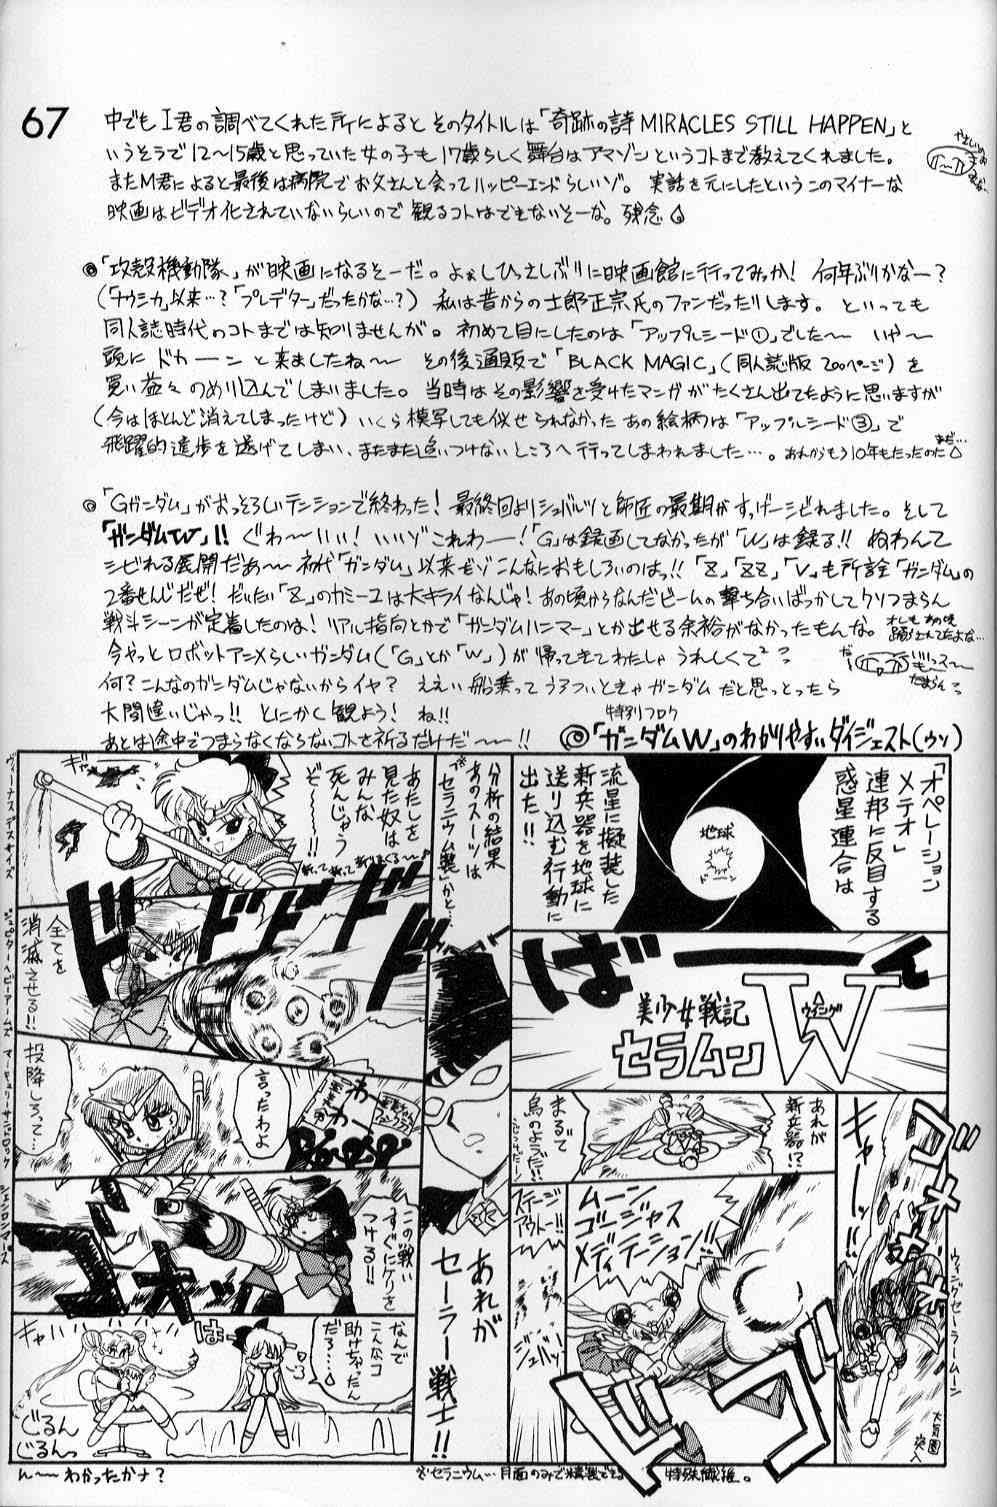 67
中でもI君の調べてくれた所によるとそのタイトルは「奇跡の詩 MIRACLES STILL HAPPEN」と
いうそうで12〜15歳と思っていた女の子も17歳らしく舞台はアマゾンというコトまで教えてくれました。
またM君によると最後は病院でお父さんと会ってハッピーエンドらしいゾ。実話を元にしたというこのマイナーな
映画はビデオ化されていないらしいので観るコトはできないそーな。残念
◎「攻殻機動隊」が映画になるそーだ。よぉしひっさしぶりに映画館に行ってみっか! 何年ぶりかなー?
(「ナウシカ」以来…?「プレデター」だったかな…?) 私は昔からの士郎正宗氏のファンだったりします。といっても
同人誌時代のコトまでは知りませんが。初めて目にしたのは「アップルシード①」でした〜 いや〜
頭にドカーンと来ましたね〜 その後通販で「BLACK MAGIC」(同人誌版200ページ)を
買い益々のめり込んでしまいました。当時はその影響を受けたマンガがたくさん出てたように思いますが
(今はほとんど消えてしまったけど) いくら模写しても似せられなかったあの絵柄は「アップルシード③」で
飛躍的進歩を遂げてしまい、またまた追いつけないところへ行ってしまわれました…。あれからもう10年もたったのだ
まだ…
◎「Gガンダム」がおっそろしいテンションで終わった! 最終回よりシュバルツと師匠の最期がすっげーシビれました。そして
「ガンダムW」!! ぐわ〜いい! いいゾこれわー!「G」は録画してなかったが「W」は録る!! ぬわんて
シビれる展開だぁ〜 初代「ガンダム」以来だゾこんなにおもしろいのはっ!!「Z」「ZZ」「V」も所詮「ガンダム」の
2番せんじだぜ! だいたい「Z」のカミーユは大キライなんじゃ! あの頃からなんだビームの撃ち合いばっかしてクソつまらん
戦斗シーンが定着したのは! リアル指向とかで「ガンダムハンマー」とか出せる余裕がなかったもんな。
今やっとロボットアニメらしいガンダム(「G」とか「W」)が帰ってきてわたしゃうれしくて
何? こんなのガンダムじゃないからイヤ? ええい船乗ってうろついときゃガンダムだと思っとったら
大間違いじゃっ!! とにかく観よう! ね!!
あとは途中でつまらなくならないコトを祈るだけだ〜!!
特別フロク
◎「ガンダムW」のわかりやすいダイジェスト(ウソ)
「オペレーション
メテオ」
連邦に反目する
惑星連合は
地球
流星に擬装した
新兵器を地球に
送り込む行動に
出た!!
ばーーーん
美少女戦記
セラムン
W
ウイング
ゴオオオオ
キャーー!!
ウィング・セーラームーン
大気圏
突入
あれが
新兵器!?
まるで
鳥のようだ!!
ムーン
ゴージャス
メディテーション!!
ステージ
アウトー!!
ジュバッ
ドゴオ
分析の結果
あのスーツは
セラニウム製かと…
あれが
セーラー戦士!!
あたしを
見た奴は
みんな
死んじゃう
ぞ〜!!
ギャー
ヴィーナスデスサイズ
ドドドドド
全てを
消滅させる!!
ジュピターヘビーアームズ
投降しろって…
言ったわよ
わー
わー
マーキュリーサンドロック
この戦い
すぐにケリを
つける!!
ゴオオッ
シェンロンマーズ
なんで
こんなコ
助けちゃったん
だろ…
キャハ
はー
ぐるん
ぐるんっ
ん〜わかったかナ?
※セラニウム…月面のみで精製できる特殊繊維。